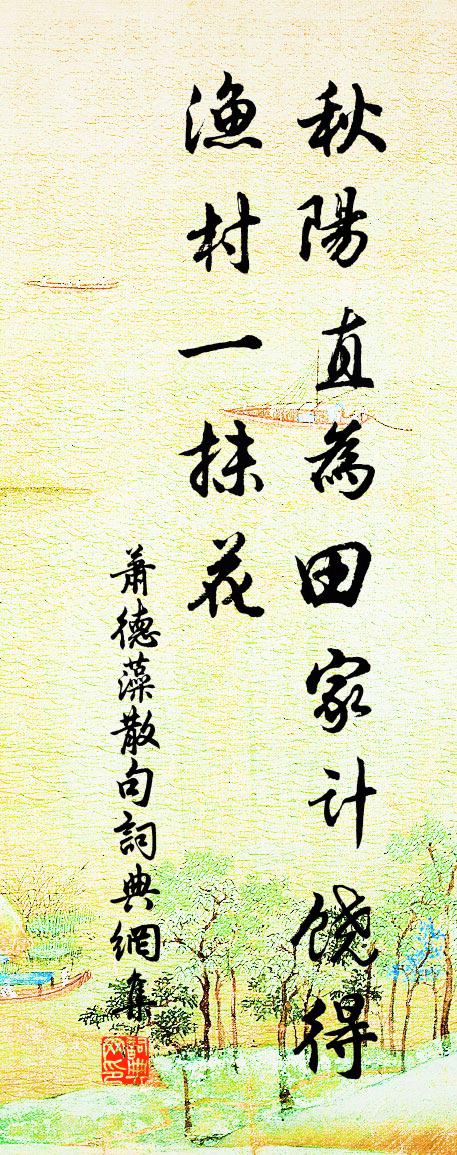 秋陽直為田家計饒得
渔村一抹花
萧德藻散句詞典網集